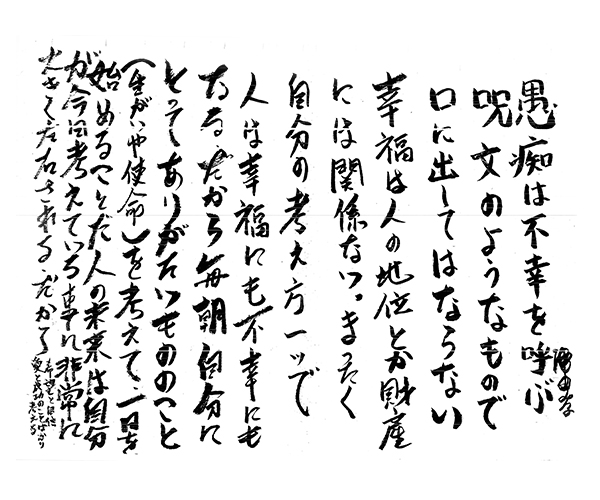 愚痴は不幸を呼ぶ
呪文のようなもので
口に出してはならない
幸福は人の地位とか財産
には関係ない。まったく
自分の考え方一ッで
人は幸福にも不幸にも
なる。だから毎朝自分に
とってありがたいもののこと
(生がいや使命)を考えて、一日を
始めることだ人の未来は自分
が今日考えている事に非常に
大きく左右される。だから
希望と自信
愛と成功のことばかり
考える